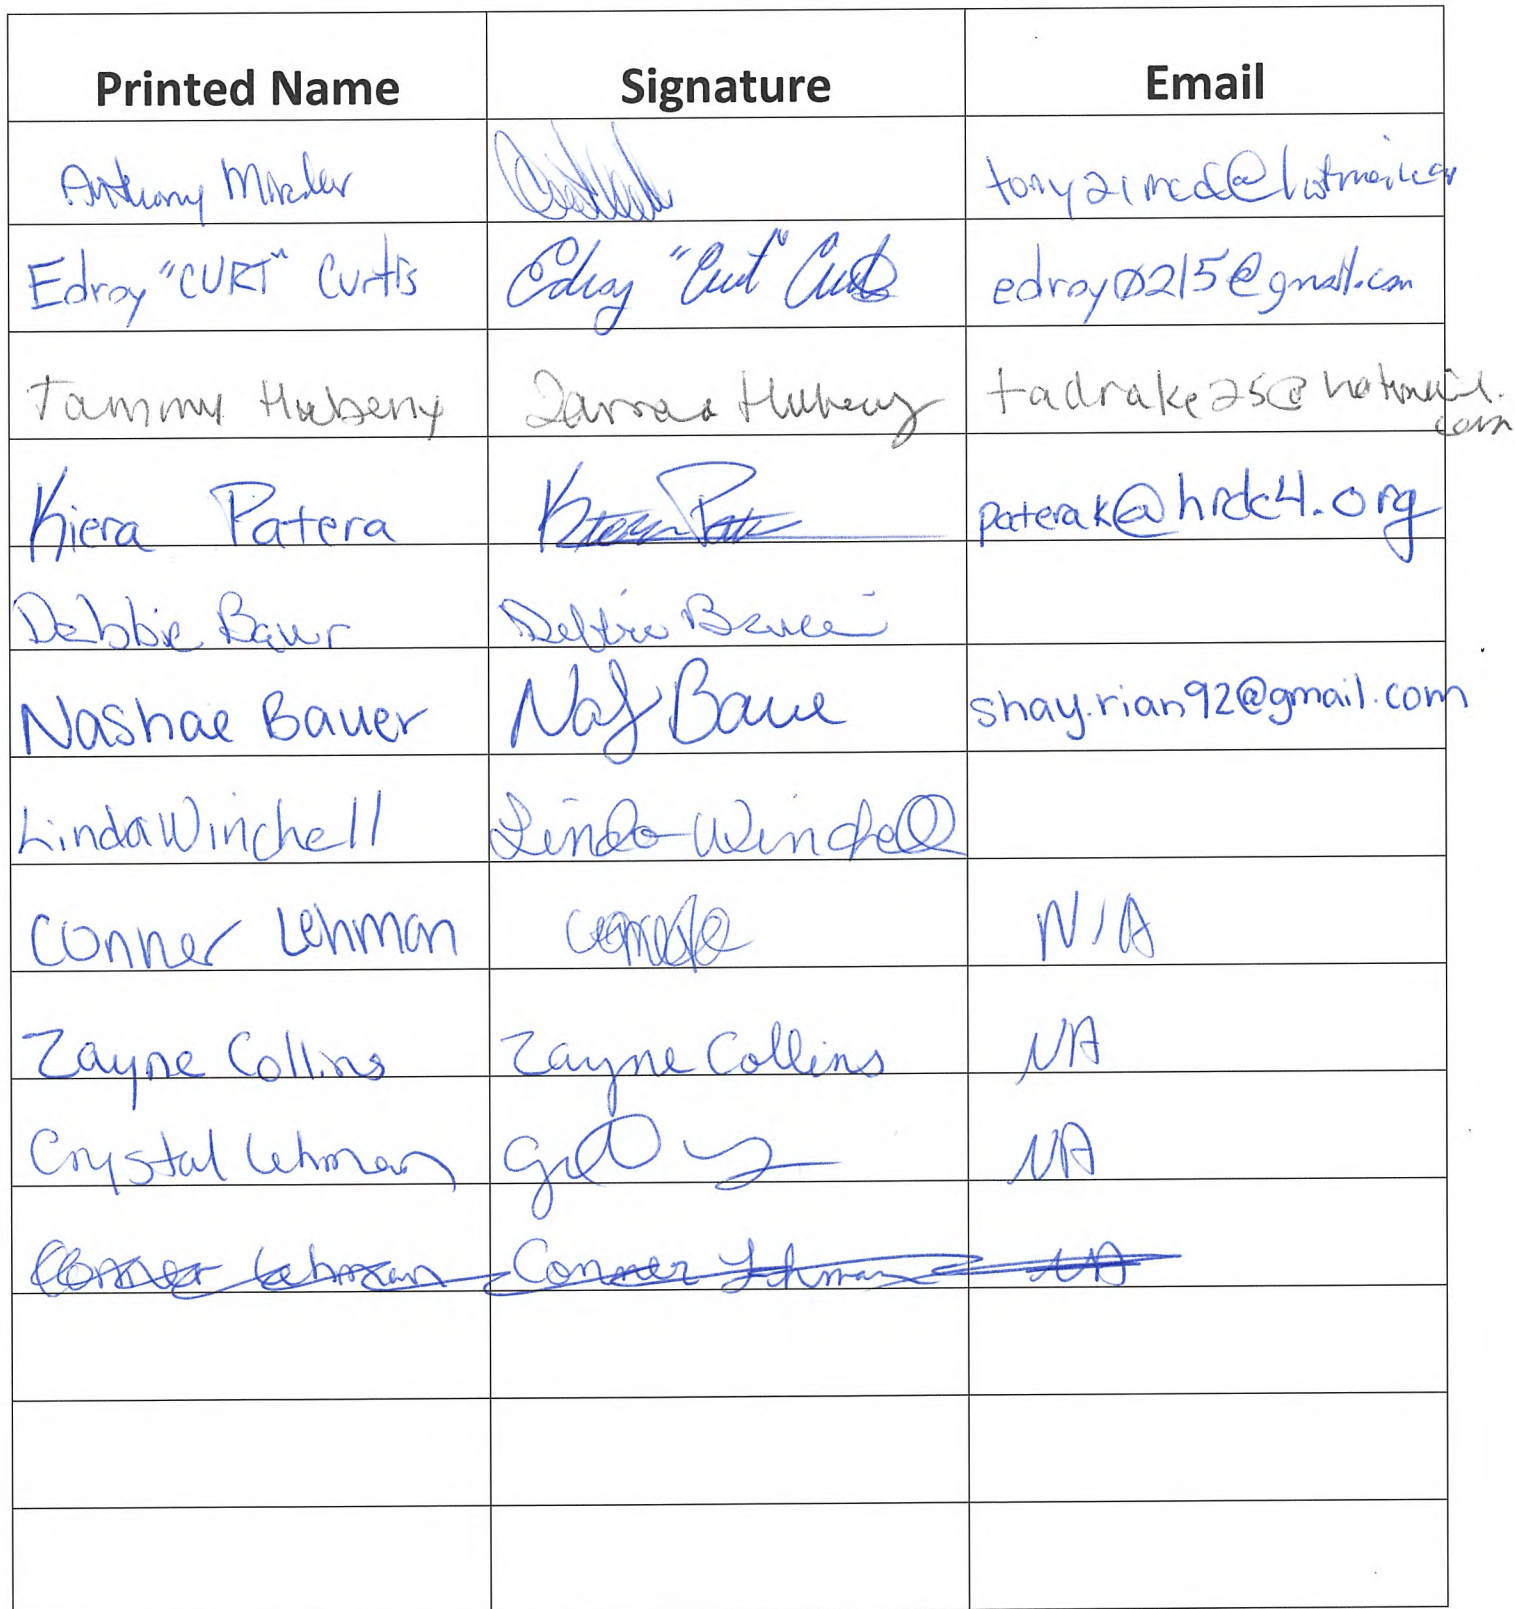 Printed Name Signature Email
Anthony
Edroy "CURT" Curtis Edroy "Curt" Curtis edroy0215@gmail.com
Tammy Hubeny Tammy Hubeny tadrake25@hotmail.
com
Kiera Patera Kiera Patera paterak@hrdc4.org
Debbie Bauer Debbie Bauer
Nashae Bauer Bauer shay.rian92@gmail.com
Linda Winchell Linda Winchell
Conner Lehman N/A
Zayne Collins Zayne Collins NA
Crystal Lehman NA
Conner Lehman Conner Lehman NA